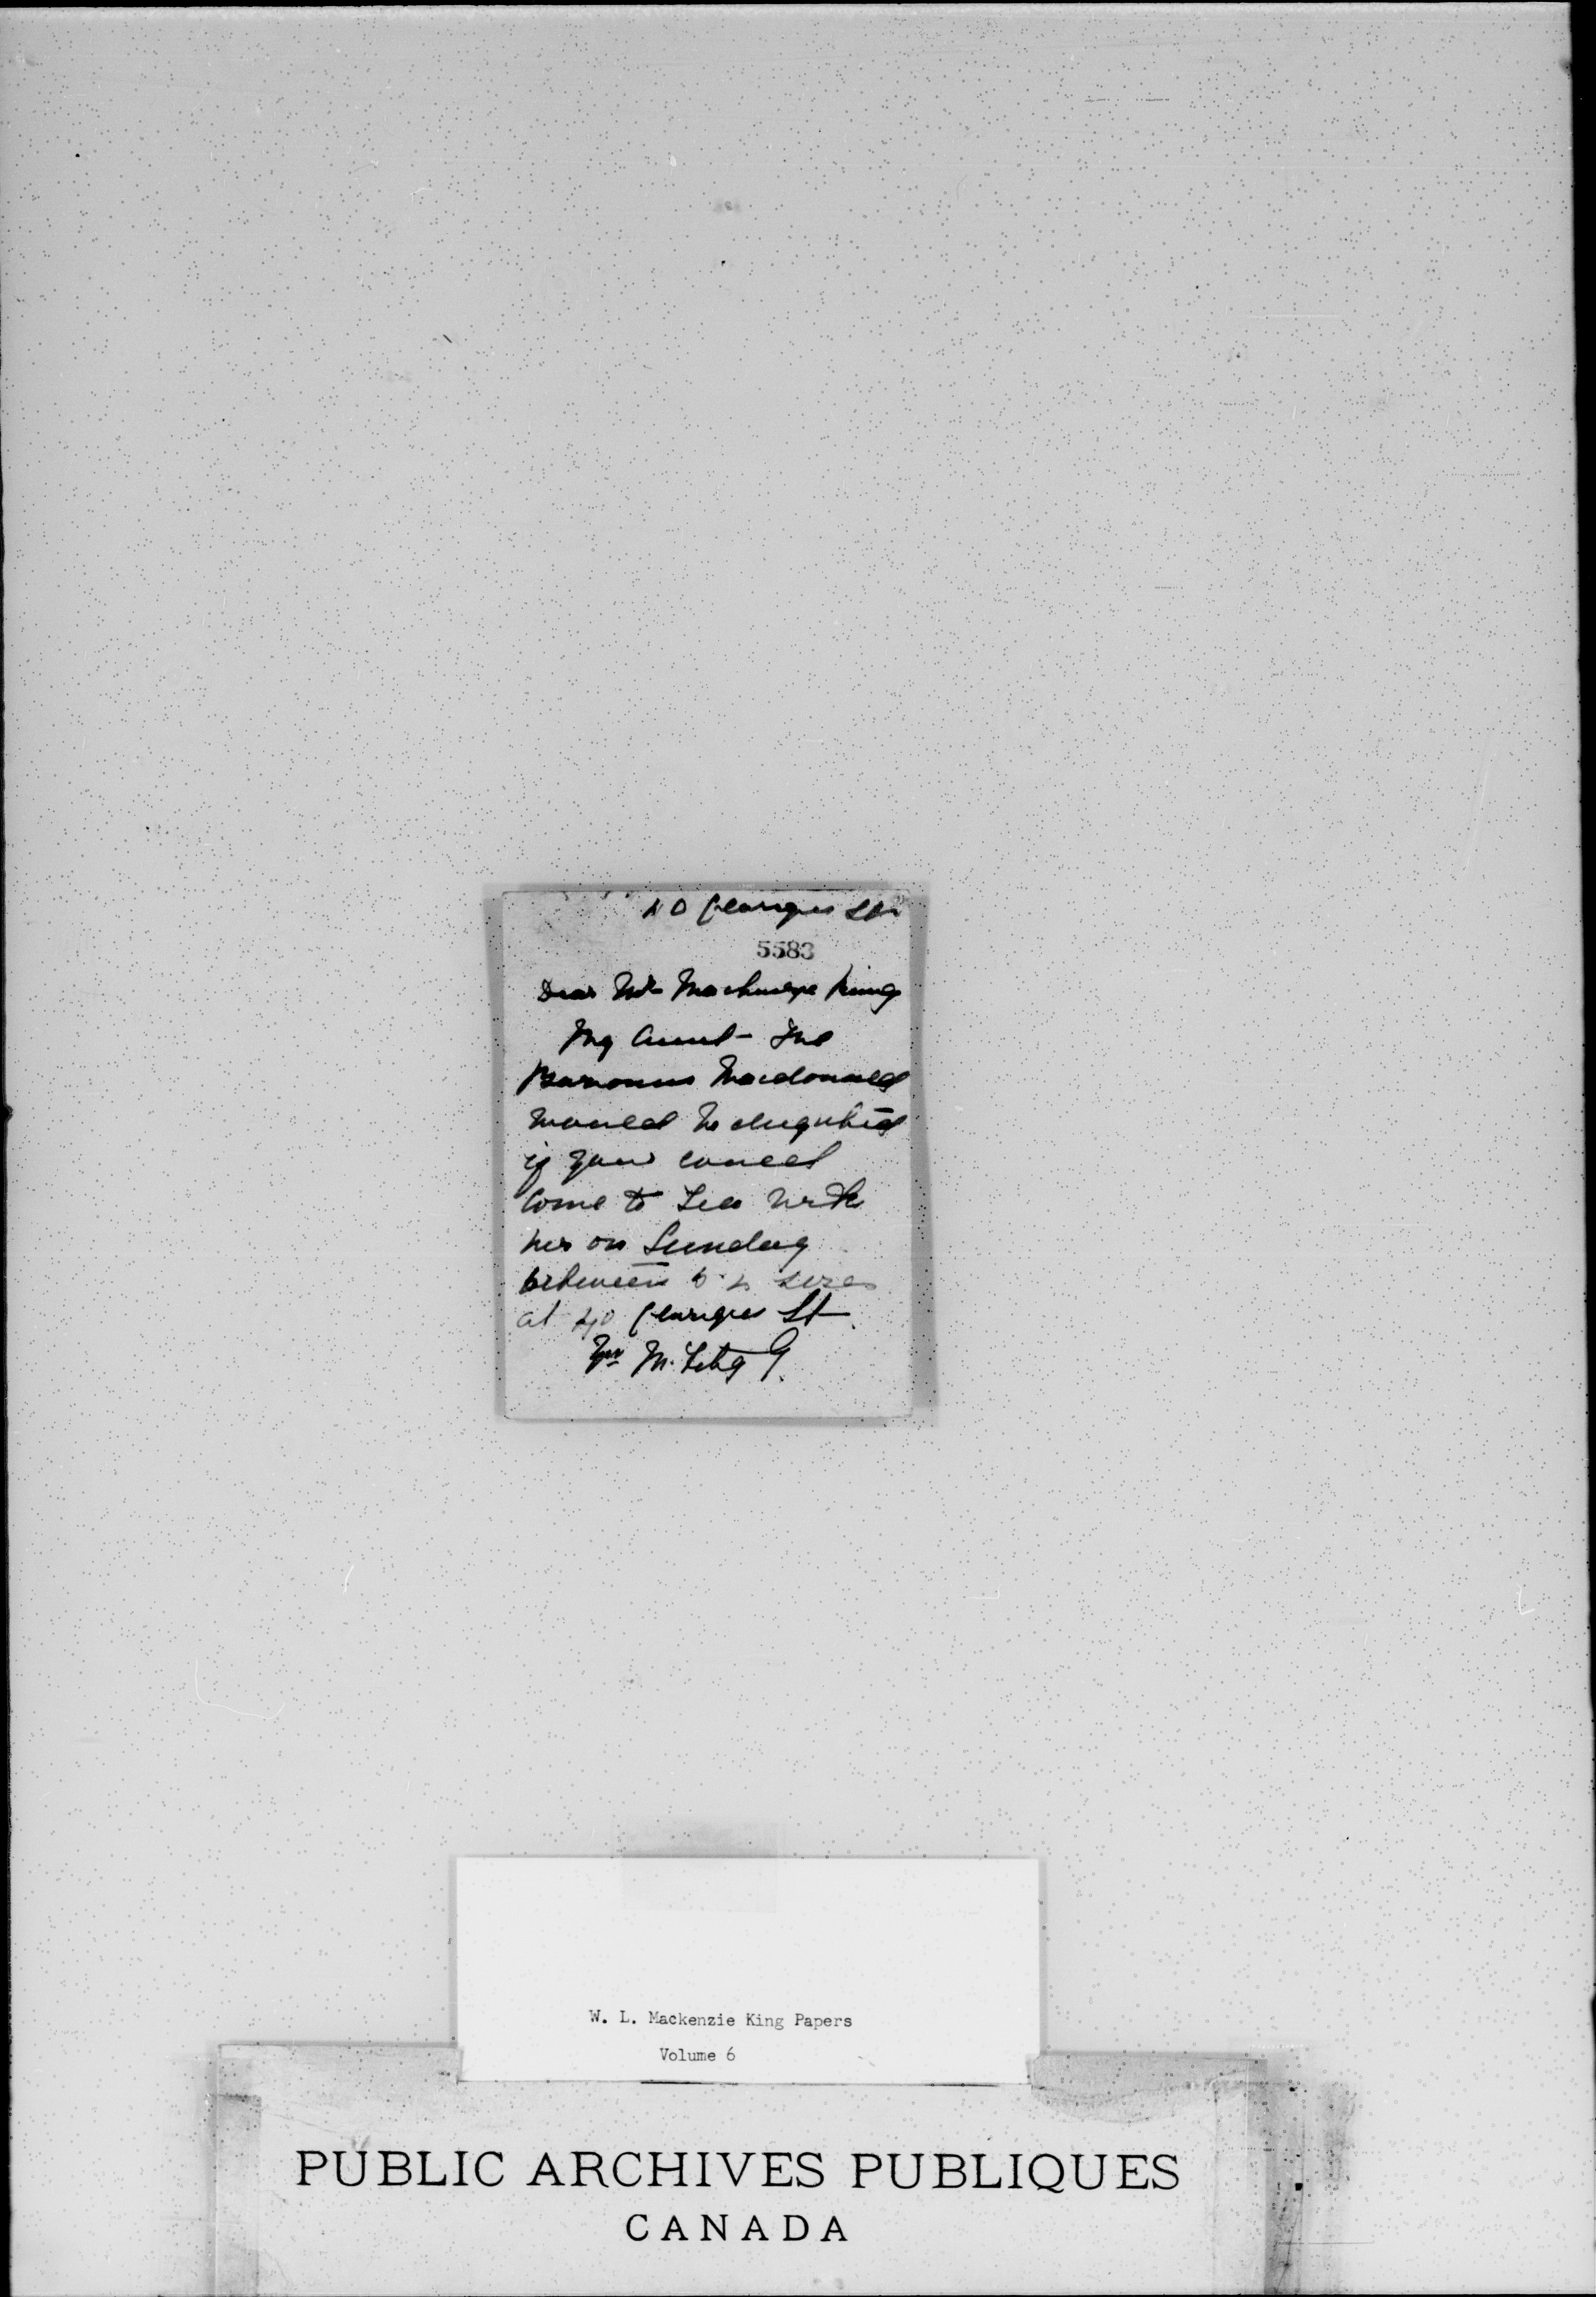 40 Georges St
5583
Dear Mr Mackenzie King
My Aunt - The
Baroness Macdonald
would be delighted
if you could
come to Tea with
her on Sunday
between
at 40 Georges St
M.
W. L. Mackenzie King Papers
Volume 6
PUBLIC ARCHIVES PUBLIQUES
CANADA